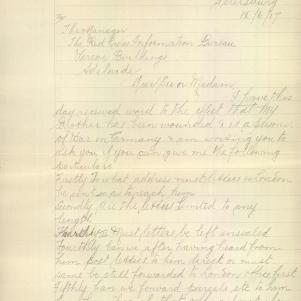 Petersburg
18/6/17
The Manager
The Red Cross Information Bureau
Verco Buildings
Adelaide
Dear Sir or Madam
I have this
day received word to the effect that My
Brother has been wounded & is a Prisoner
of War in Germany & am writing you to
ask you if you can give me the following
particulars
Firstly To what address must letters in London
be sent so as to reach him
Secondly are the letters limited to any
length
Must letters be left unsealed
Fourthly Can we after having heard from
him post letters to him direct or must
same be still forwarded to London Office first
Fifthly can we forward parcels etc to him